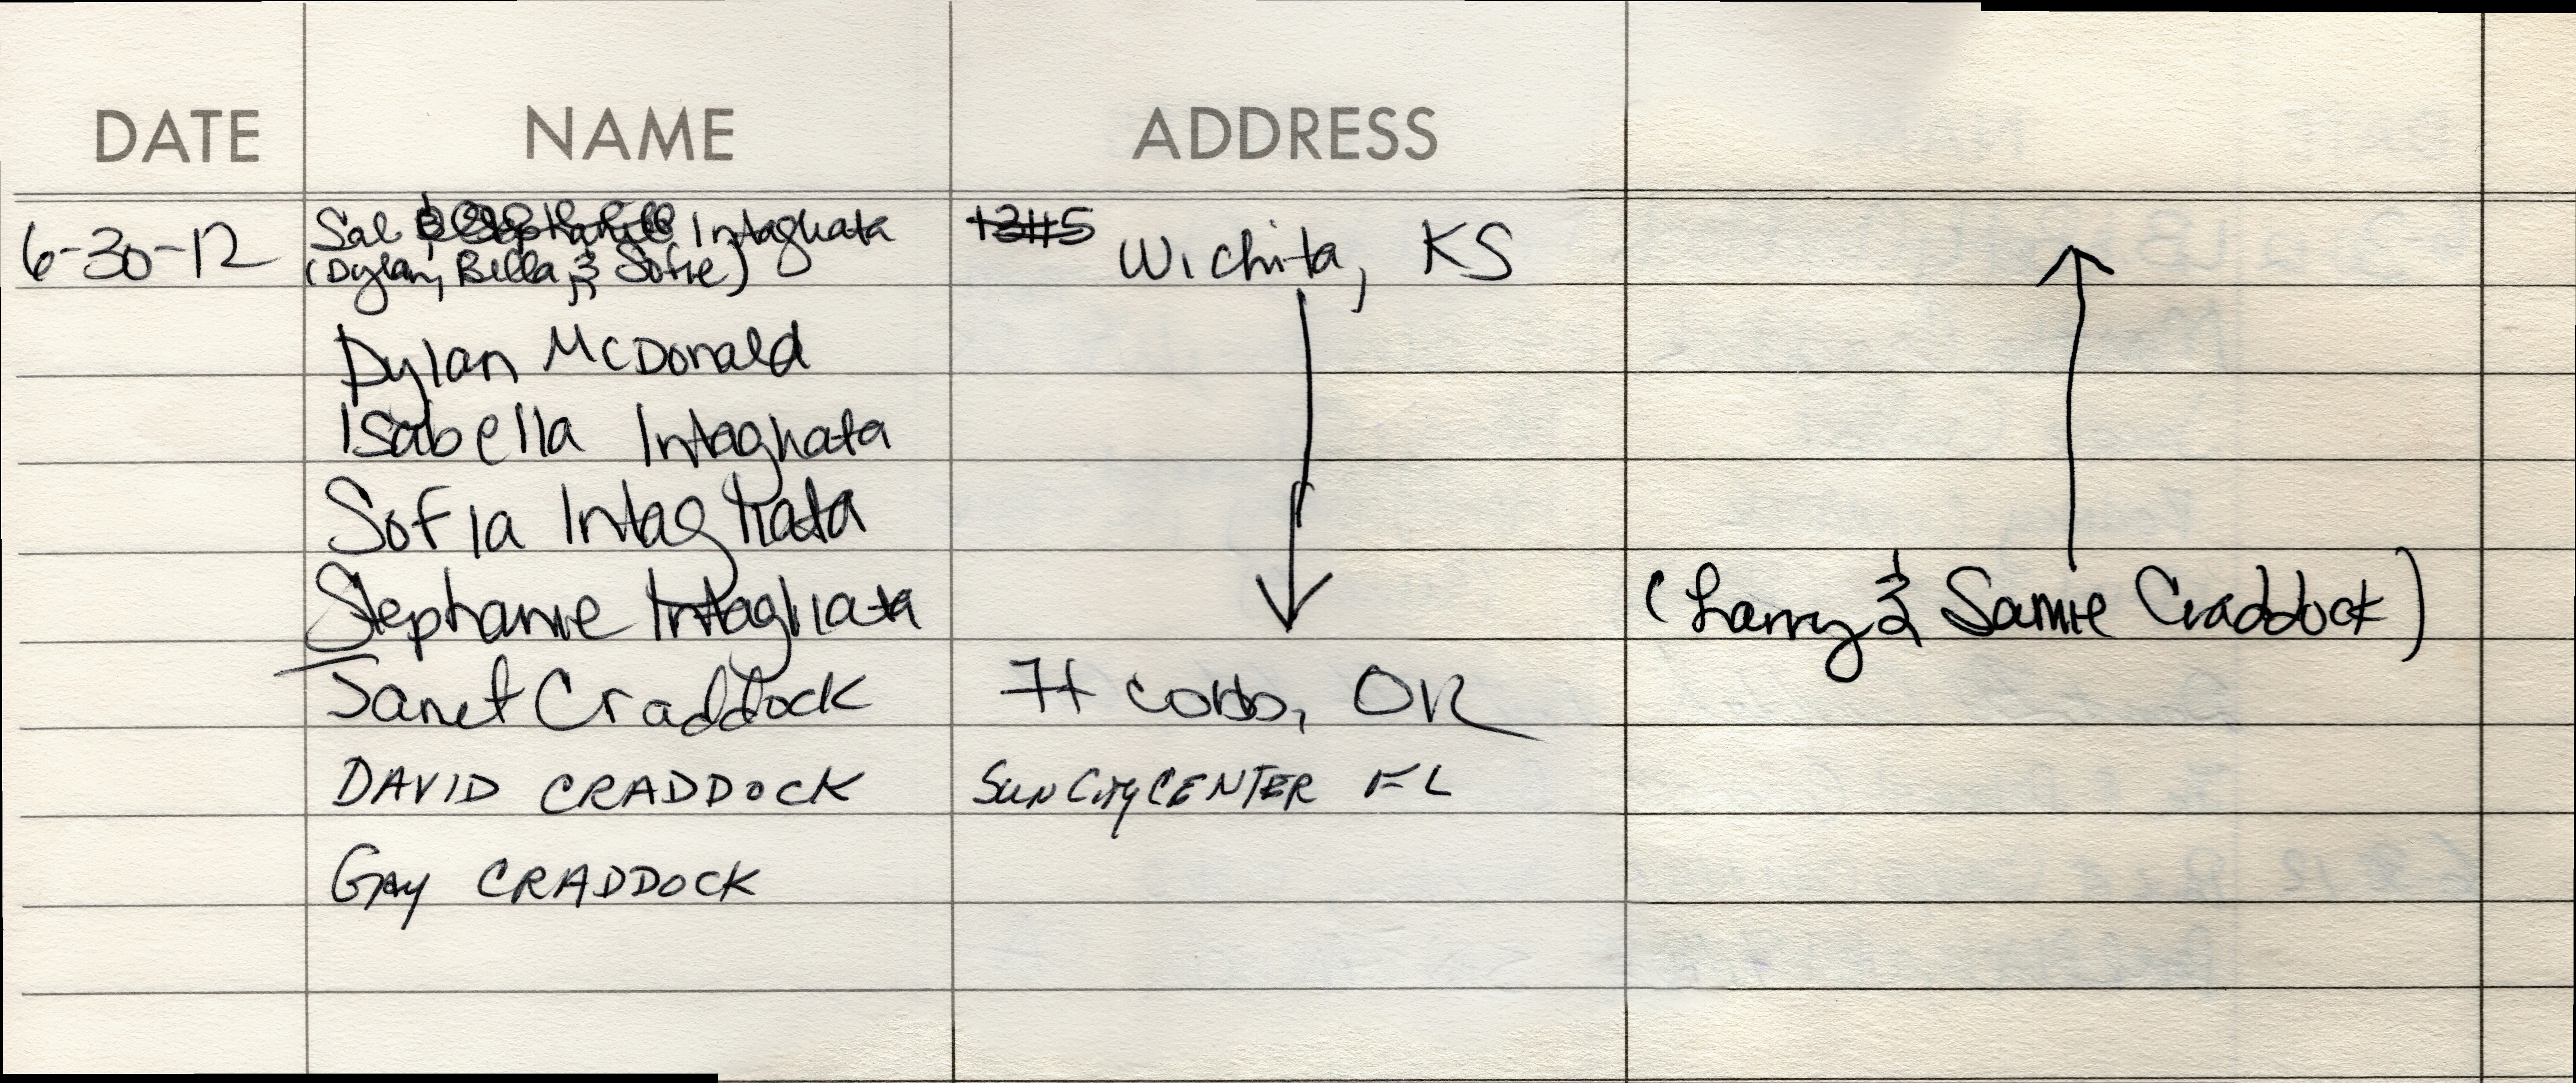 DATE NAME ADDRESS
6-30-12 Sal Intagliata Wichita, KS
(Dylan, Bella & Sofie)
Dylan McDonald
Isabella Intagliata
Sofia Intagliata
Stephanie Intagliata (Larry & Samie Craddock)
Janet Craddock OR
DAVID CRADDOCK SUN City CENTER FL
GAY CRADDOCK